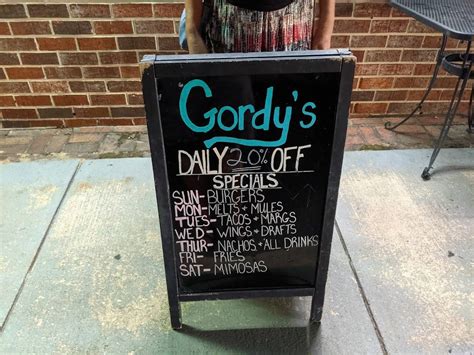 Gordy's
DAILY 20% OFF
SPECIALS
SUN- BURGERS
MON- MELTS + MULES
TUES- TACOS + MARGS
WED- WINGS + DRAFTS
THUR- NACHOS + ALL DRINKS
FRI- FRIES
SAT- MIMOSAS